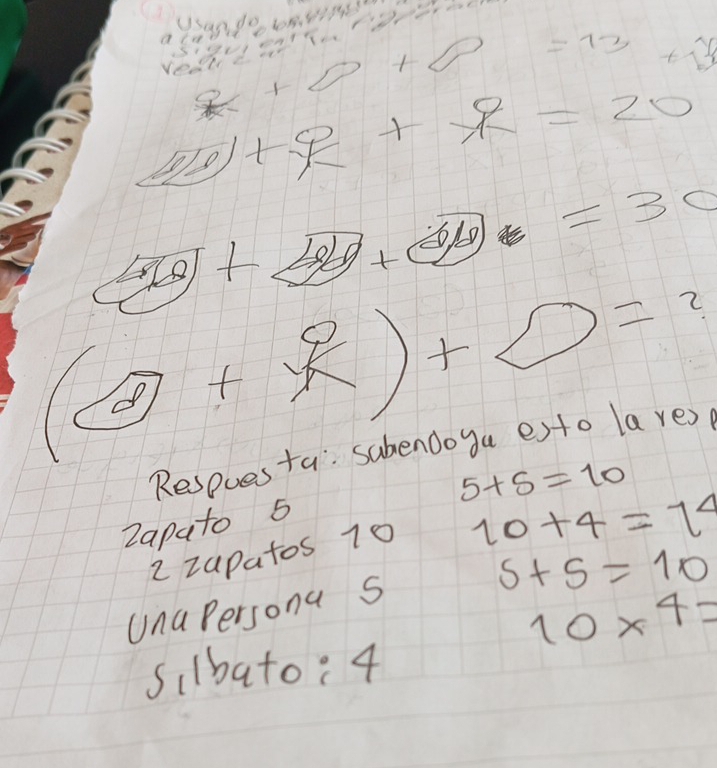 Usando
+ + = 13
+ + = 20
+ + = 30
( + ) + = ?
Respuesta: sabendoya esto la resp
zapato 5
5+5=10
2 zapatos 10
10+4=14
Una Persona 5
5+5=10
Silbato: 4
10×4=